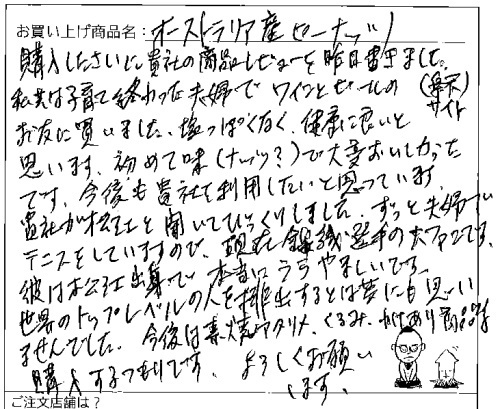 お買い上げ商品名：オーストラリア産ピーナッツ
購入したさいに貴社の商品レビューを昨日書きました。
私共は子育て終わった夫婦でワインとビールの（楽天サイト）
お友に買いました。塩っぱくなく、健康に良いと
思います。初めて味（ナッツ？）で大変おいしかった
です。今後も貴社を利用したいと思っています。
貴社が松江と聞いてびっくりしました。ずっと夫婦で
テニスをしていますので、現在錦織選手の大ファンです。
彼は松江出身で本当にうらやましいです。
世界のトップレベルの人を排出するとは夢にも思い
ませんでした。今後は素焼アタリメ、くるみ、かけあり商品等
購入するつもりです。よろしくお願い
します。
ご注文店舗は？